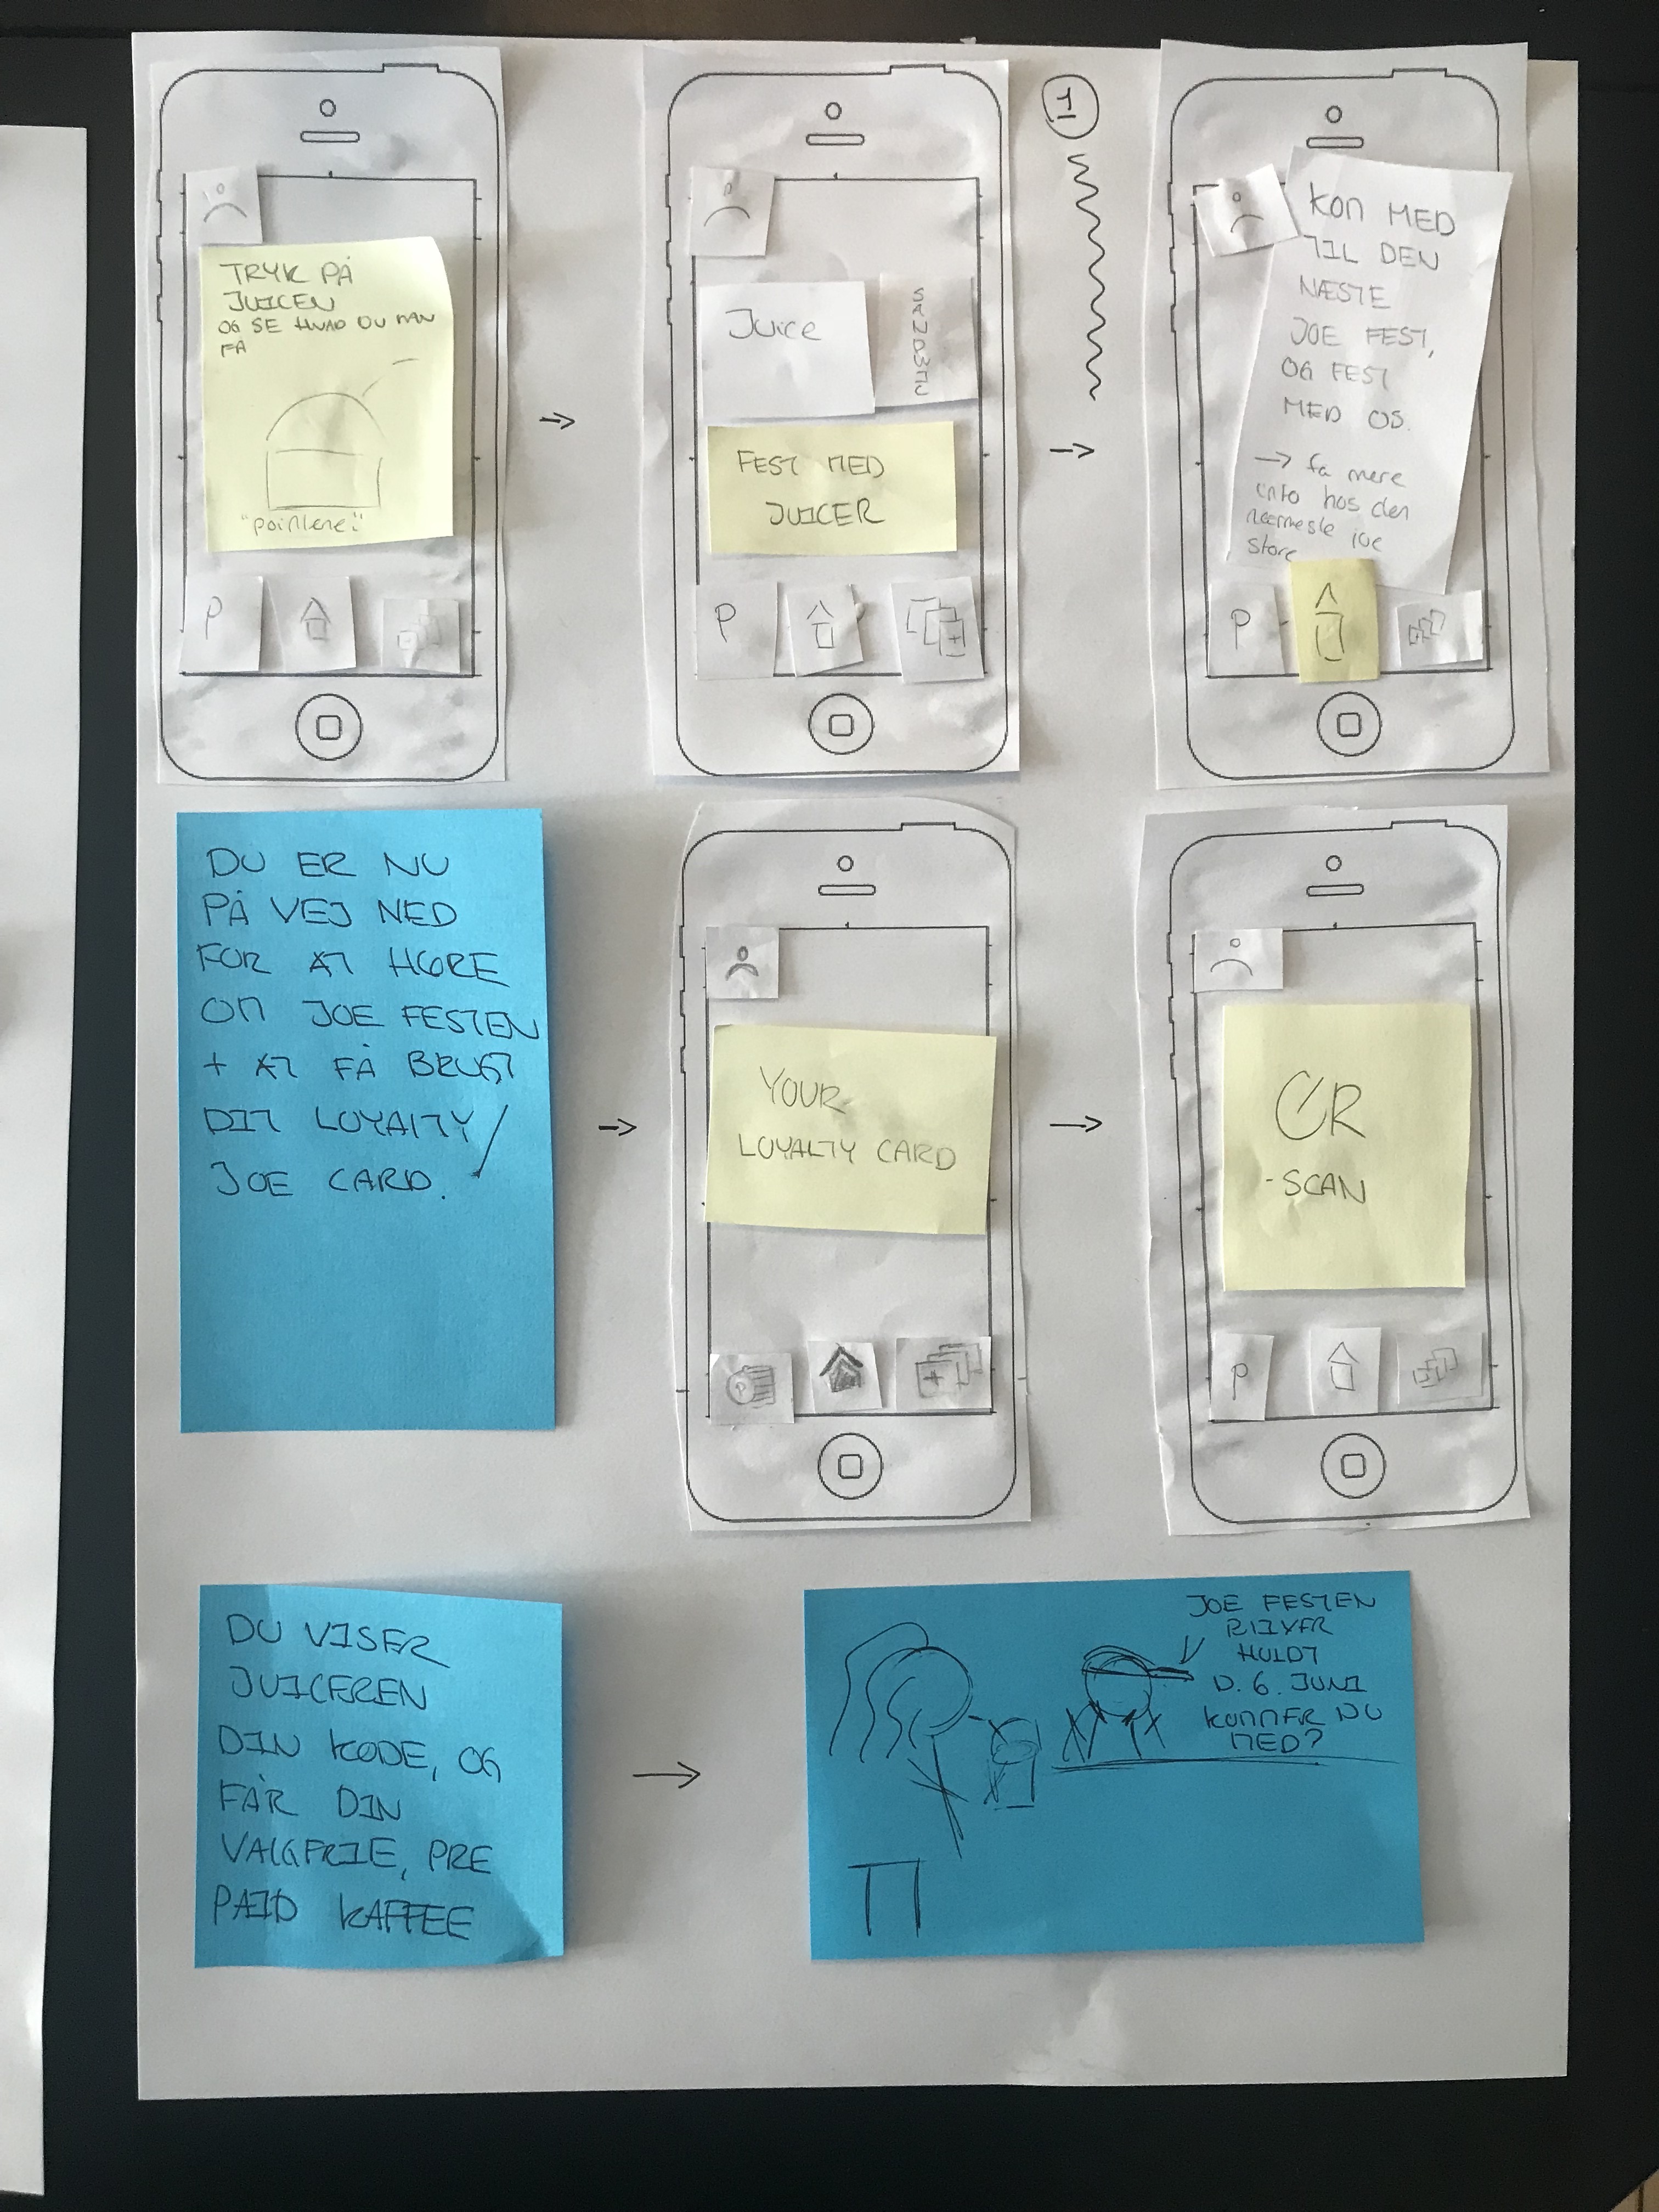 TRYK PÅ
JUICEN
OG SE HVAD DU KAN
FÅ
P
Juice
SANDWICH
FEST MED
JUICER
P
T1
KOM MED
TIL DEN
NÆSTE
JOE FEST,
OG FEST
MED OS.
→ få mere
info hos den
nærmeste joe
store
P
DU ER NU
PÅ VEJ NED
FOR AT HØRE
OM JOE FESTEN
+ AT FÅ BRUGT
DIT LOYALTY/
JOE CARD.
YOUR
LOYALTY CARD
QR
-SCAN
P
DU VISER
JUICEREN
DIN KODE, OG
FÅR DIN
VALGFRIE, PRE
PAID KAFFEE
JOE FESTEN
BLIVER
HOLDT
D. 6. JUNI
KOMMER DU
MED?